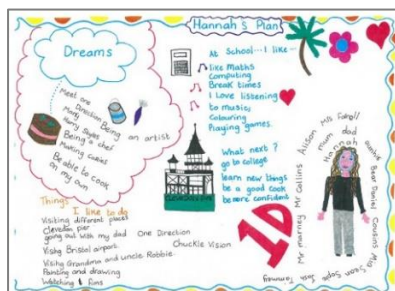 Hannah's Plan
Dreams
Meet one
Direction
Mostly
Harry Styles
Being an artist
Being a chef
Making cakes
Be able to cook
on my own
At School...I like...
like Maths
Computing
Break times
I Love listening
to music,
Colouring
Playing games.
What next?
go to college
learn new things
be a good cook
be more confident
Things
I like to do
Visiting different places
Clevedon pier
going out with my dad
One Direction
Chuckle Vision
Visiting Bristol airport.
Visiting Grandma and uncle Robbie.
Painting and drawing
Watching films
1D
Mr Marney Mr Collins
Alison
mum
dad
Hannah
Bear Daniel Cousins